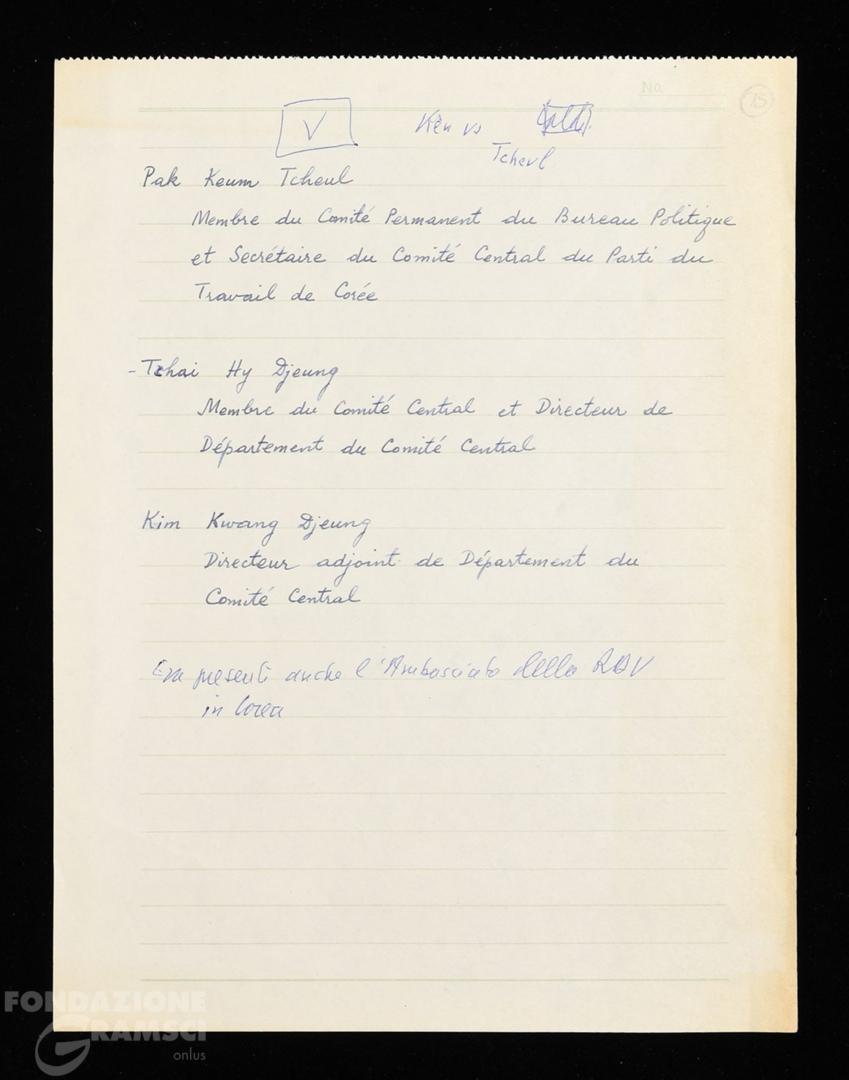 No
15
V
Tcheul
Pak Keum Tcheul
Membre du Comité Permanent du Bureau Politique
et Secrétaire du Comité Central du Parti du
Travail de Corée
- Tchai Hy Djeung
Membre du Comité Central et Directeur de
Département du Comité Central
Kim Kwang Djeung
Directeur adjoint de Département du
Comité Central
present anche l'Ambasciata della RDV
in Corea
FONDAZIONE
GRAMSCI
onlus